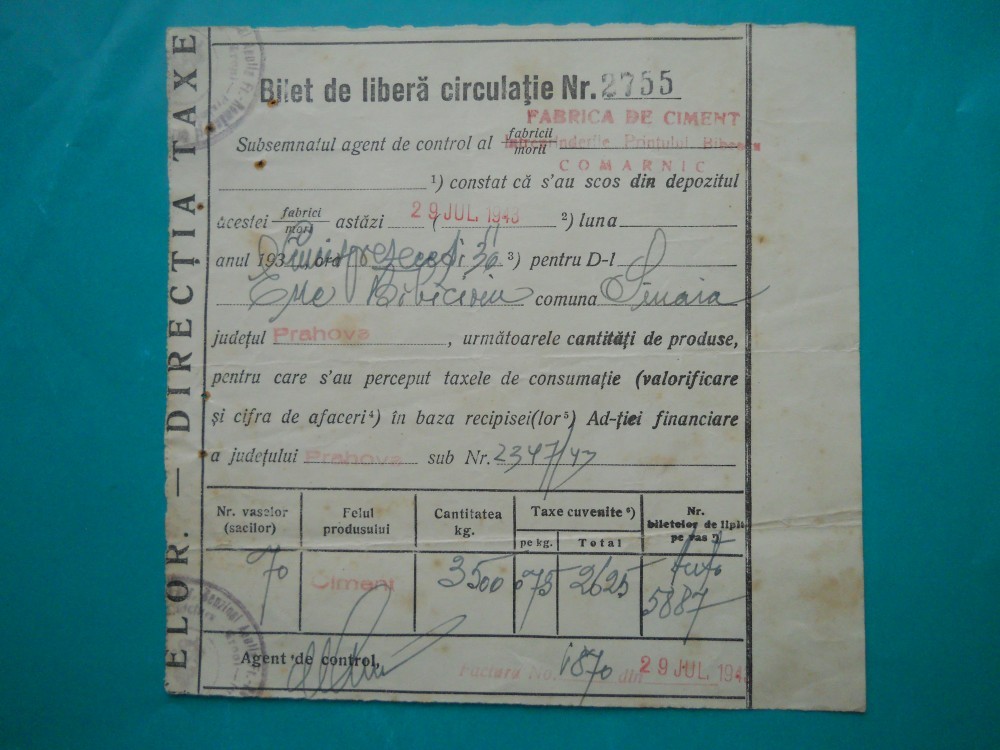 ELOR. — DIRECȚIA TAXE
Bilet de liberă circulație Nr. 2755
FABRICA DE CIMENT
Subsemnatul agent de control al fabricii morii Intreprinderile Printului Bibescu
COMARNIC
¹) constat că s'au scos din depozitul
acestei fabrici mori astăzi ( 29 JUL. 1943 ²) luna
anul 193 , ora 30 ³) pentru D-l
comuna Sinaia
județul Prahova , următoarele cantități de produse,
pentru care s'au perceput taxele de consumație (valorificare
și cifra de afaceri⁴) în baza recipisei(lor⁵) Ad-ției financiare
a județului Prahova sub Nr. 2347/43
Nr. vaselor (sacilor)
Felul produsului
Cantitatea kg.
Taxe cuvenite ⁶)
pe kg.
Total
Nr. biletelor de lipit pe vas ⁷)
70 Ciment 3500 075 2625 auto 5887
Agent de control,
Factura No. 1870 din 29 JUL. 194